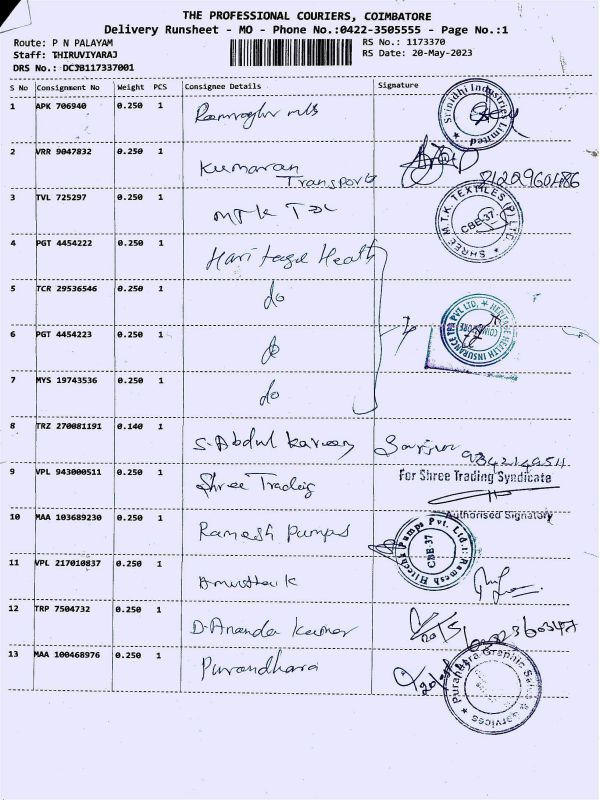 THE PROFESSIONAL COURIERS, COIMBATORE
Delivery Runsheet - MO - Phone No.:0422-3505555 - Page No.:1
Route: P N PALAYAM
RS No.: 1173370
Staff: THIRUVIYARAJ
RS Date: 20-May-2023
DRS No.: DCJB117337001
S No Consignment No Weight PCS Consignee Details Signature
1 APK 706940 0.250 1
Srinidhi Industries Limited
2 VRR 9047832 0.250 1 Kumaran Transports
3 TVL 725297 0.250 1
SHREE M.T.K. TEXTILES (P) LTD
CBE-37
4 PGT 4454222 0.250 1 Heritage Health
5 TCR 29536546 0.250 1 do
6 PGT 4454223 0.250 1 do
HERITAGE HEALTH INSURANCE TPA PVT LTD.
COIMBATORE
7 MYS 19743536 0.250 1 do
8 TRZ 270081191 0.140 1 S. Abdul Kareem
9 VPL 943000511 0.250 1 Shree Trading
For Shree Trading Syndicate
Authorised Signatory
10 MAA 103689230 0.250 1 Ramesh Pumps
Ramesh Hitech Pumps Pvt. Ltd.
CBE-37
11 VPL 217010837 0.250 1 Amuttha K
12 TRP 7504732 0.250 1 D. Ananda Kumar
13 MAA 100468976 0.250 1 Purandhara